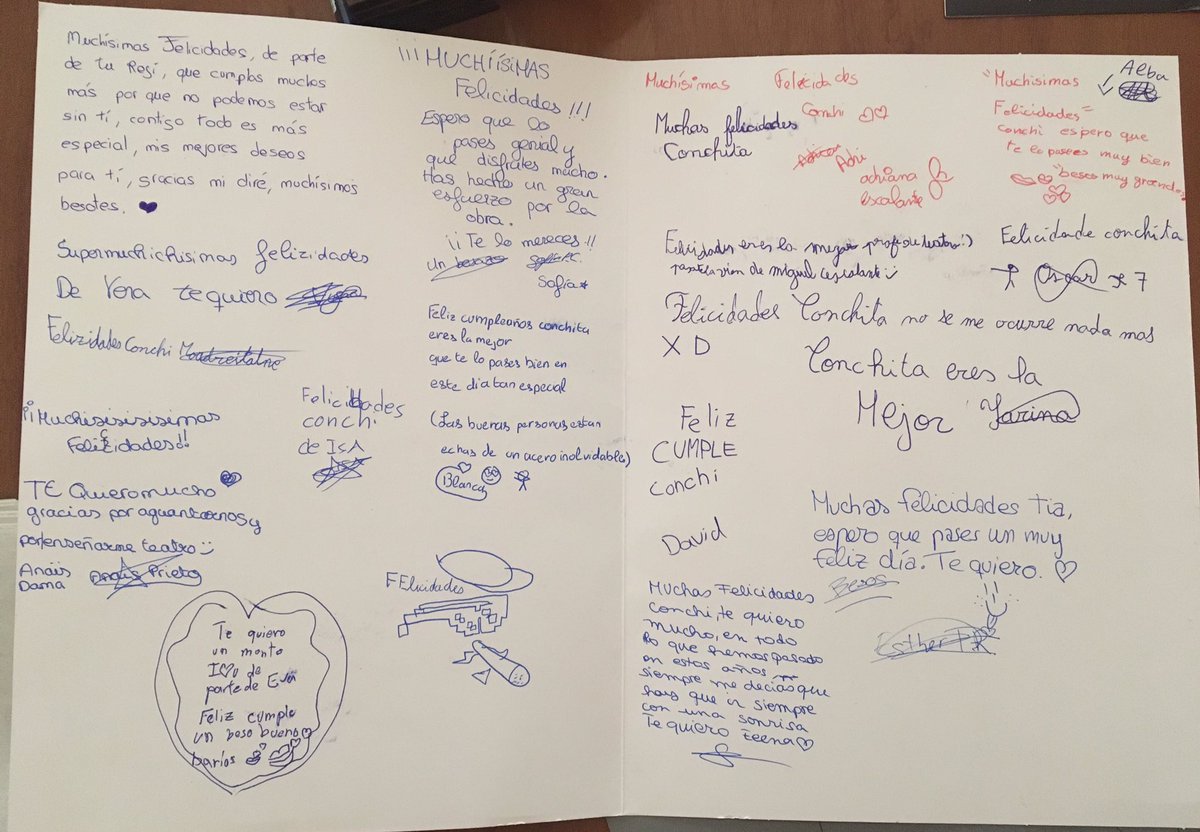 Muchísimas Felicidades, de parte
de tu Rosi, que cumplas muchos
más por que no podemos estar
sin tí, contigo todo es más
especial, mis mejores deseos
para tí, gracias mi diré, muchísimos
besotes.
Supermuchichisimas felizidades
De Vera te quiero
Felizidades Conchi
¡¡Muchisisisisimas
Felizidades!!
Felicidades
conchi
de ISA
TE Quiero mucho
gracias por aguantarnos y
por enseñarme teatro
Anaïs
Dama
Anaïs Prieto
Te quiero
un monto
I U de
parte de Eva
Feliz cumple
un beso bueno
barios
¡¡¡MUCHÍÍSIMAS
Felicidades!!!
Espero que lo
pases genial y
que disfrutes mucho.
Has hecho un gran
esfuerzo por la
obra.
¡¡Te lo mereces!!
un
Sofía
Feliz cumpleaños conchita
eres la mejor
que te lo pases bien en
este dia tan especal
(Las buenas personas estan
echas de un acero inolvidable)
Blanca
FElicidades
Muchísimas Felicidades
Conchi
Muchas felicidades
Conchita
Adri
adriana
escalante
Alba
"Muchisimas
Felicidades"
conchi espero que
te lo pases muy bien
"besos muy grandes
Felicidades eres la mejor profe de teatro:)
de miguel escalante
Felicidade conchita
Oscar x 7
Felicidades Conchita no se me ocurre nada mas
X D
Conchita eres la
Mejor Yarina
Feliz
CUMPLE
Conchi
David
Muchas felicidades Tia,
espero que pases un muy
feliz día. Te quiero.
Besos
Esther
Muchas Felicidades
Conchi, te quiero
mucho, en todo
lo que hemos pasado
en estos años
siempre me decías que
hay que ir siempre
con una sonrisa
Te quiero